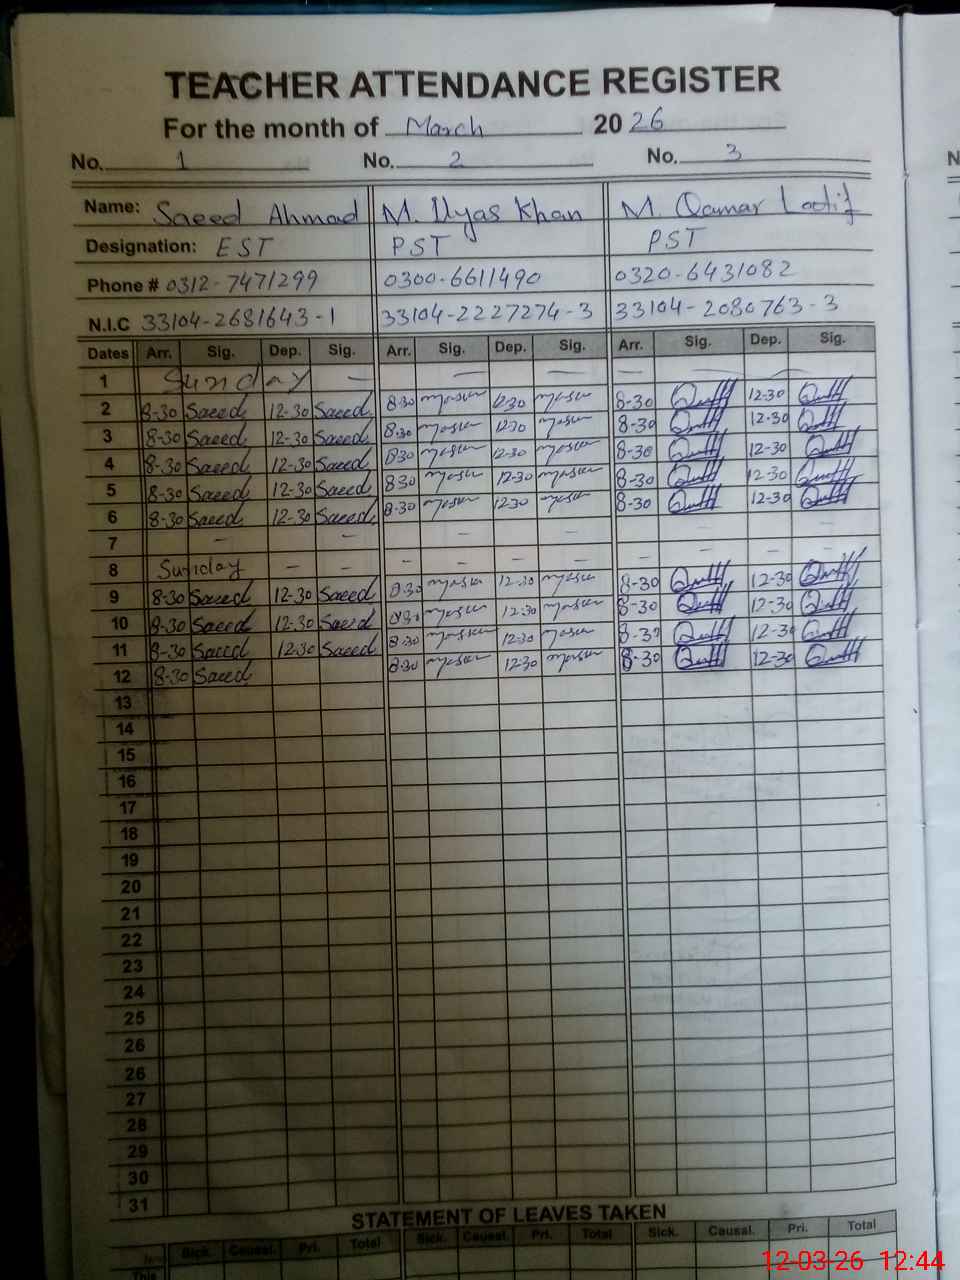 TEACHER ATTENDANCE REGISTER
For the month of March 2026
No. 1 No. 2 No. 3
Name: Saeed Ahmad M. Ilyas Khan M. Qamar Latif
Designation: EST PST PST
Phone # 0312-7471299 0300-6611490 0320-6431082
N.I.C 33104-2681643-1 33104-2227274-3 33104-2080763-3
Dates Arr. Sig. Dep. Sig. Arr. Sig. Dep. Sig. Arr. Sig. Dep. Sig.
1 Sunday — — — — —
2 8-30 Saeed 12-30 Saeed 8-30 12-30 8-30 12-30
3 8-30 Saeed 12-30 Saeed 8-30 12-30 8-30 12-30
4 8-30 Saeed 12-30 Saeed 8-30 12-30 8-30 12-30
5 8-30 Saeed 12-30 Saeed 8-30 12-30 8-30 12-30
6 8-30 Saeed 12-30 Saeed 8-30 12-30 8-30 12-30
7 – – – – – – – –
8 Sunday – – – – – – – – –
9 8-30 Saeed 12-30 Saeed 8-30 12-30 8-30 12-30
10 8-30 Saeed 12-30 Saeed 8-30 12-30 8-30 12-30
11 8-30 Saeed 12-30 Saeed 8-30 12-30 8-30 12-30
12 8-30 Saeed 8-30 12-30 8-30 12-30
13
14
15
16
17
18
19
20
21
22
23
24
25
26
26
27
28
29
30
31
STATEMENT OF LEAVES TAKEN
Sick. Causal. Pri. Total Sick. Causal. Pri. Total Sick. Causal. Pri. Total
This
12-03-26 12:44